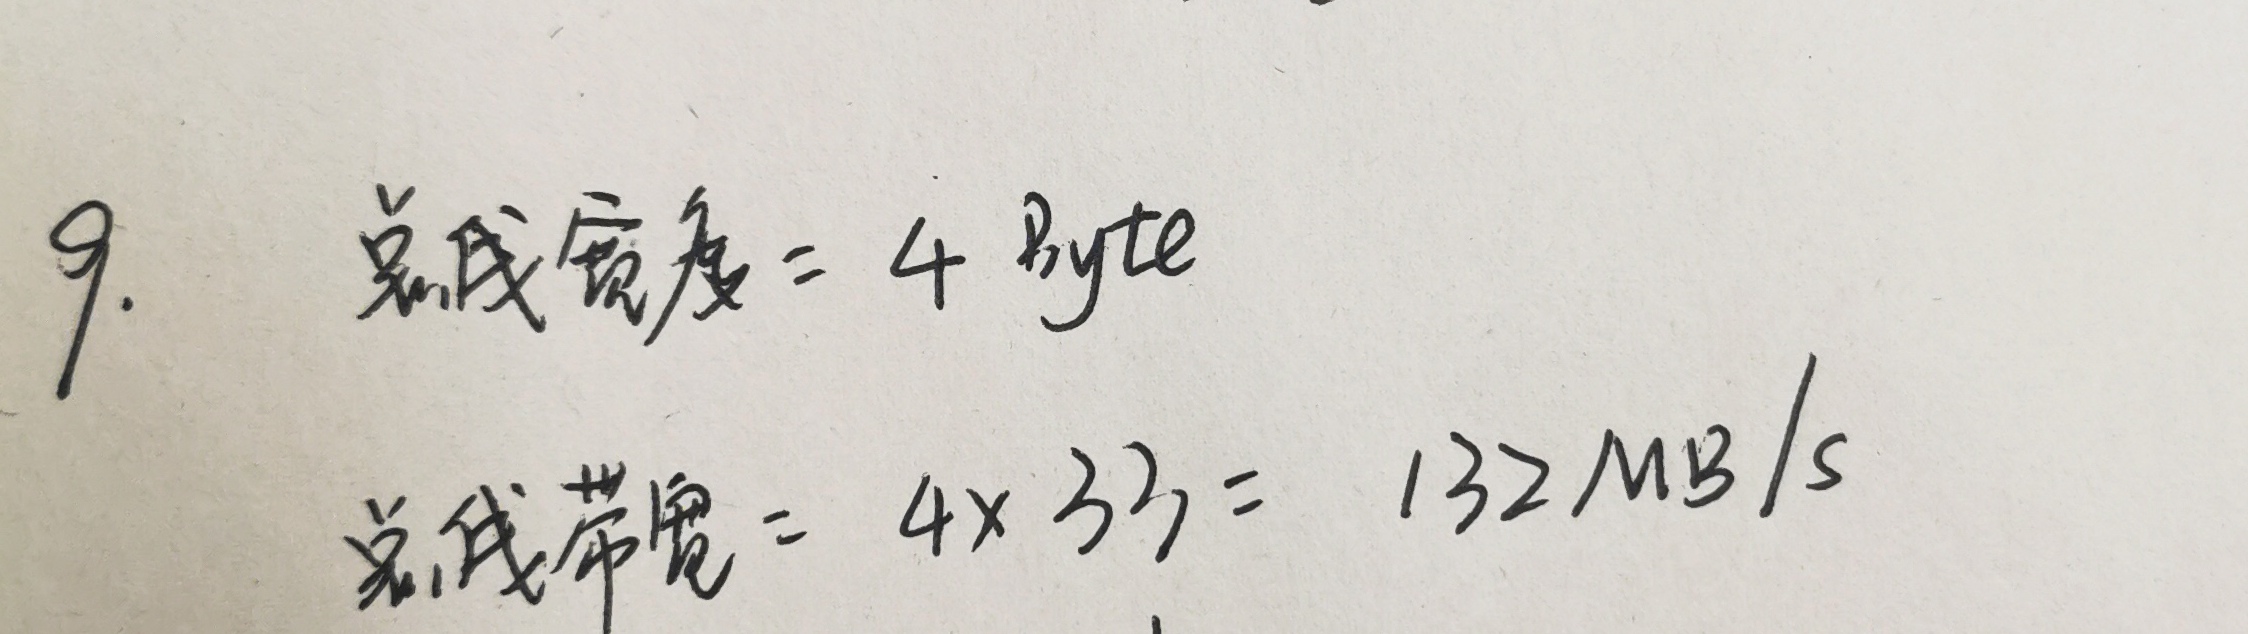 9. 总线宽度 = 4 Byte
总线带宽 = 4×33 = 132 MB/s